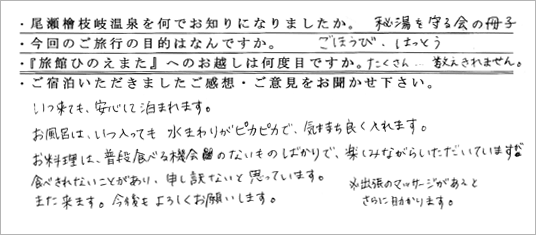 ・尾瀬檜枝岐温泉を何でお知りになりましたか。 秘湯を守る会の冊子
・今回のご旅行の目的はなんですか。 ごほうび、はっとう
・『旅館ひのえまた』へのお越しは何度目ですか。たくさん… 数えきれません。
・ご宿泊いただきましたご感想・ご意見をお聞かせ下さい。
いつ来ても、安心して泊まれます。
お風呂は、いつ入っても 水まわりがピカピカで、気持ち良く入れます。
お料理は、普段食べる機会のないものばかりで、楽しみながらいただいていますが
食べきれないことがあり、申し訳ないと思っています。
また来ます。今後もよろしくお願いします。
※出張のマッサージがあると
さらに助かります。